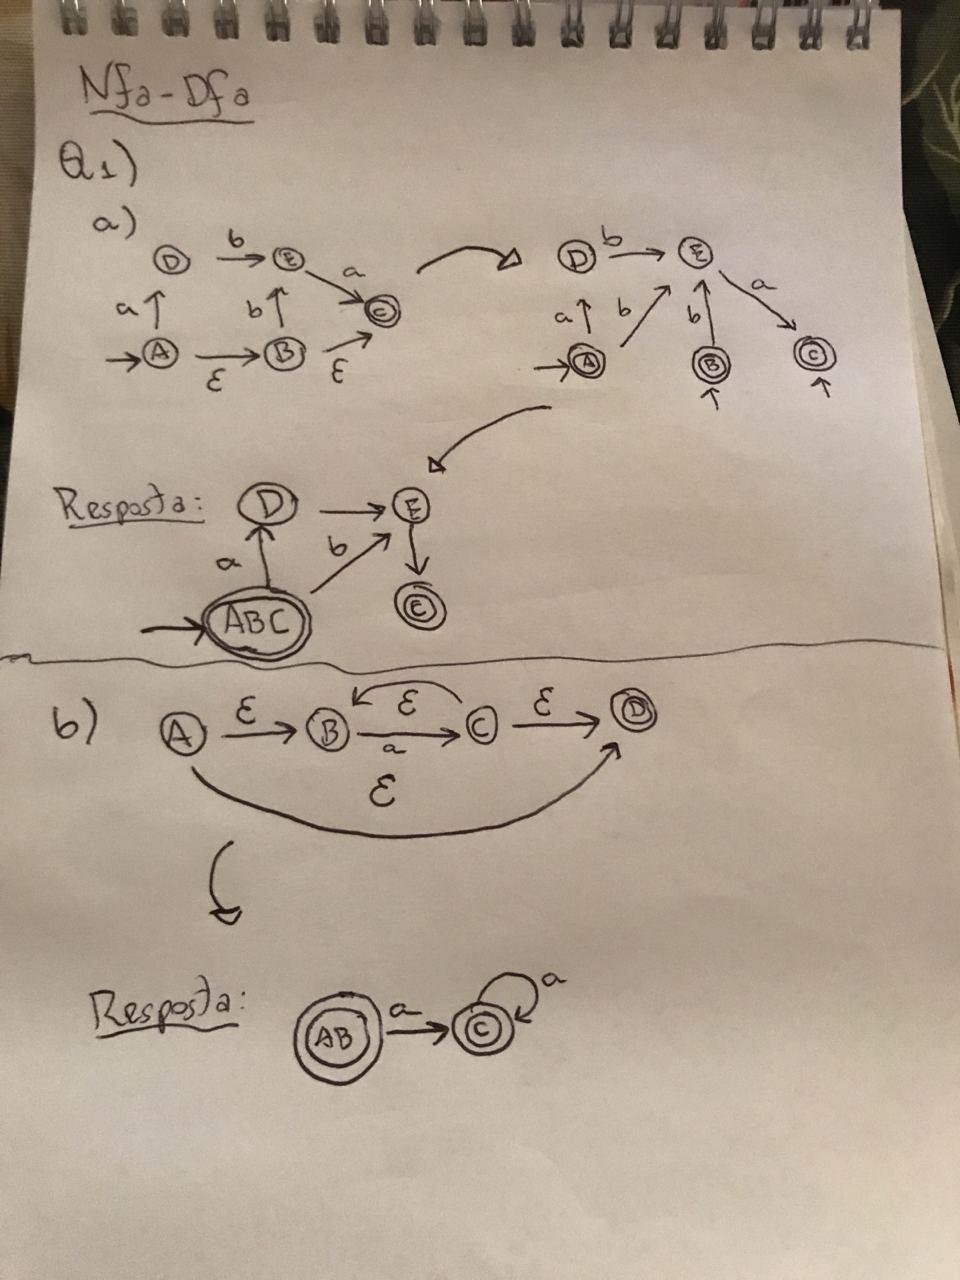 Nfa-Dfa
Q1)
a)
D b E
a b a C
A ε B ε
D b E
a b b a
A B C
Resposta: D E
a b
ABC C
b) A ε B ε C ε D
a
ε
Resposta: AB a C a